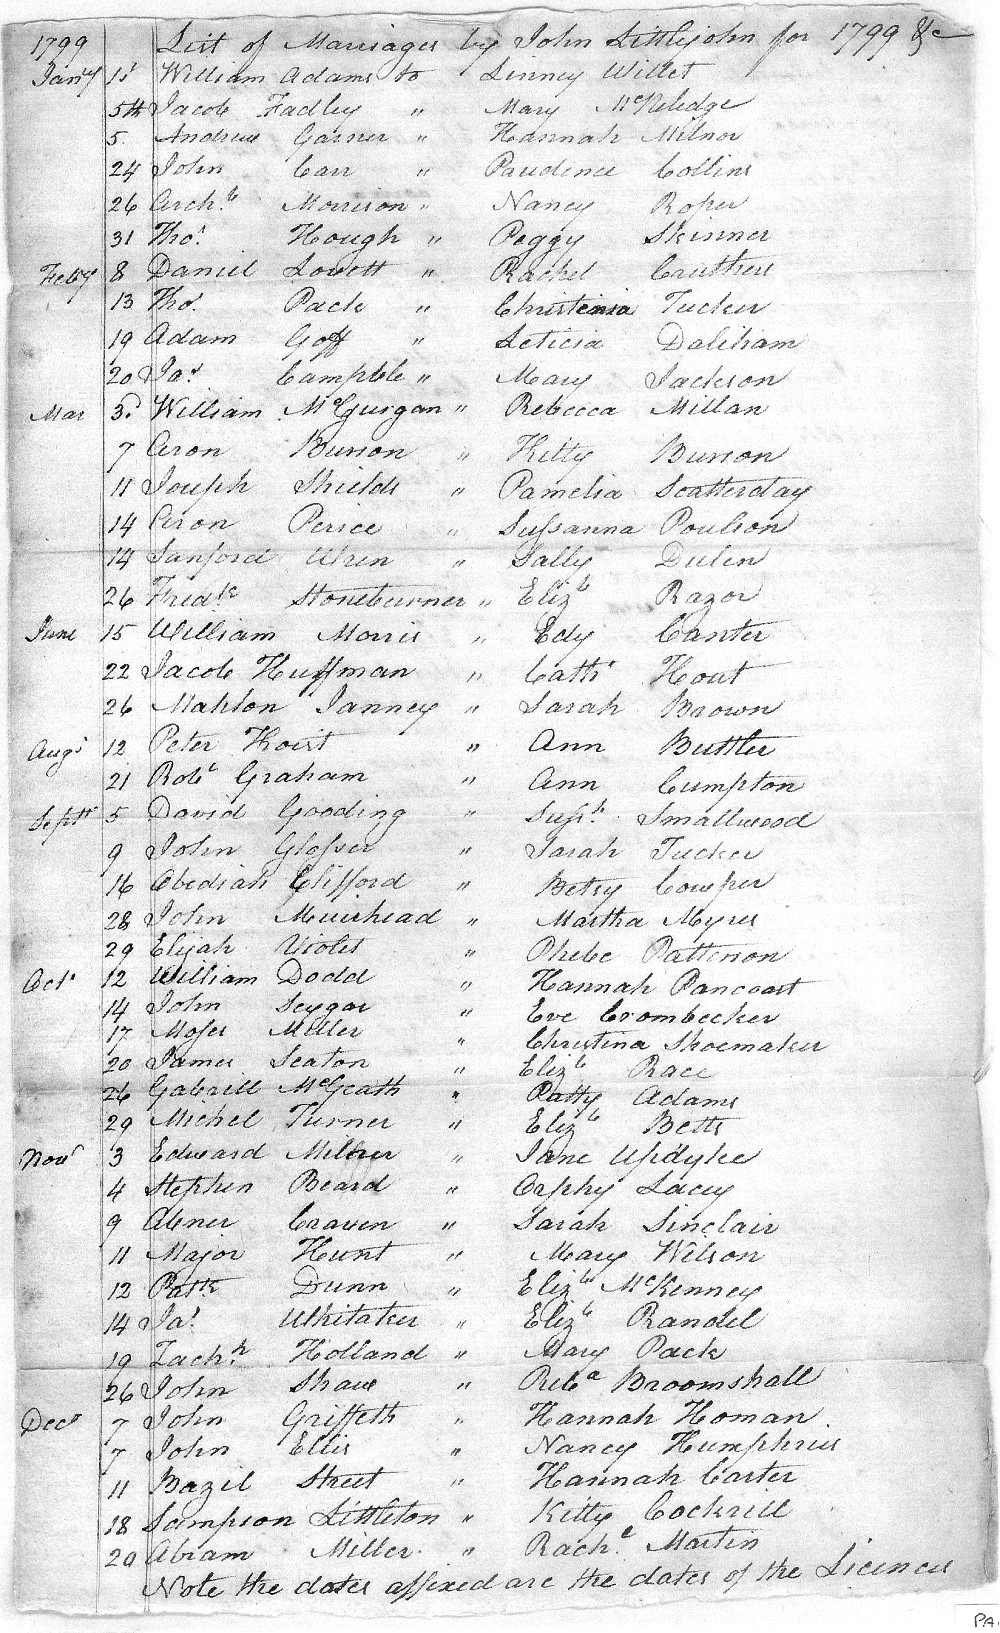 1799 List of Marriages by John Littlejohn for 1799 &c
Jany 1st William Adams to Linney Willet
5th Jacob Fadley " Mary
5 Andrew Garner " Hannah Milnor
24 John Carr " Prudence Collins
26 Archb Morrison " Nancy Roper
31 Thos Hough " Peggy Skinner
Feby 8 Daniel Lovett " Rachel Cruthers
13 Thos Pack " Christenia Tucker
19 Adam Goff " Leticia Daliham
20 Jas Campble " Mary Jackson
Mar 3d William McGurgan " Rebecca Millan
7 Aron Burson " Kitty Burson
11 Joseph Shields " Pamelia Scatterday
14 Aron Perice " Sussanna Poulson
14 Sanford Wren " Sally Dulin
26 Fredk Stoneburner " Elizb Razor
June 15 William Morris " Edy Canter
22 Jacob Huffman " Cathr Hout
26 Mahlon Janney " Sarah Brown
Augt 12 Peter Hoist " Ann Buttler
21 Robt Graham " Ann Cumpton
Septr 5 David Gooding " Sussh Smallwood
9 John Glosser " Sarah Tucker
16 Obediah Clifford " Betsy Cowper
28 John Muirhead " Martha Myres
29 Elijah Violet " Phebe Patterson
Octr 12 William Dodd " Hannah Pancoast
14 John Seygar " Eve Crombecker
17 Moses Miller " Christina Shoemaker
20 James Seaton " Elizb Race
26 Gabrill McGeath " Patty Adams
29 Michel Turner " Elizb Betts
Novr 3 Edward Milner " Jane Updyke
4 Stephen Beard " Orphy Lacey
9 Abner Craven " Sarah Sinclair
11 Major Hunt " Mary Wilson
12 Patk Dunn " Elizb McKenney
14 Jas Whitaker " Elizb Randel
19 Zachh Holland " Mary Pack
26 John Shaw " Reba Broomshall
Decr 7 John Griffeth " Hannah Homan
7 John Ellis " Nancy Humphries
11 Bazil Street " Hannah Carter
18 Sampson Littleton " Kitty Cockrill
20 Abram Miller " Rachl Martin
Note the dates affixed are the dates of the Licences
PA